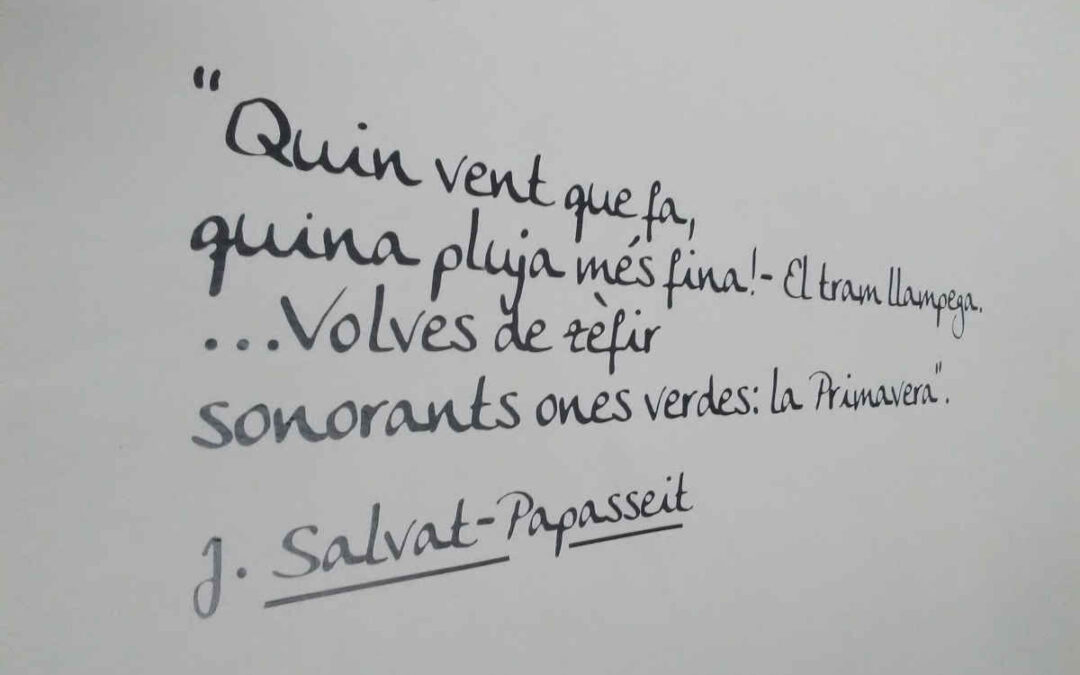 "Quin vent que fa,
quina pluja més fina!- El tram llampega.
...Volves de zèfir
sonorants ones verdes: la Primavera".
J. Salvat-Papasseit